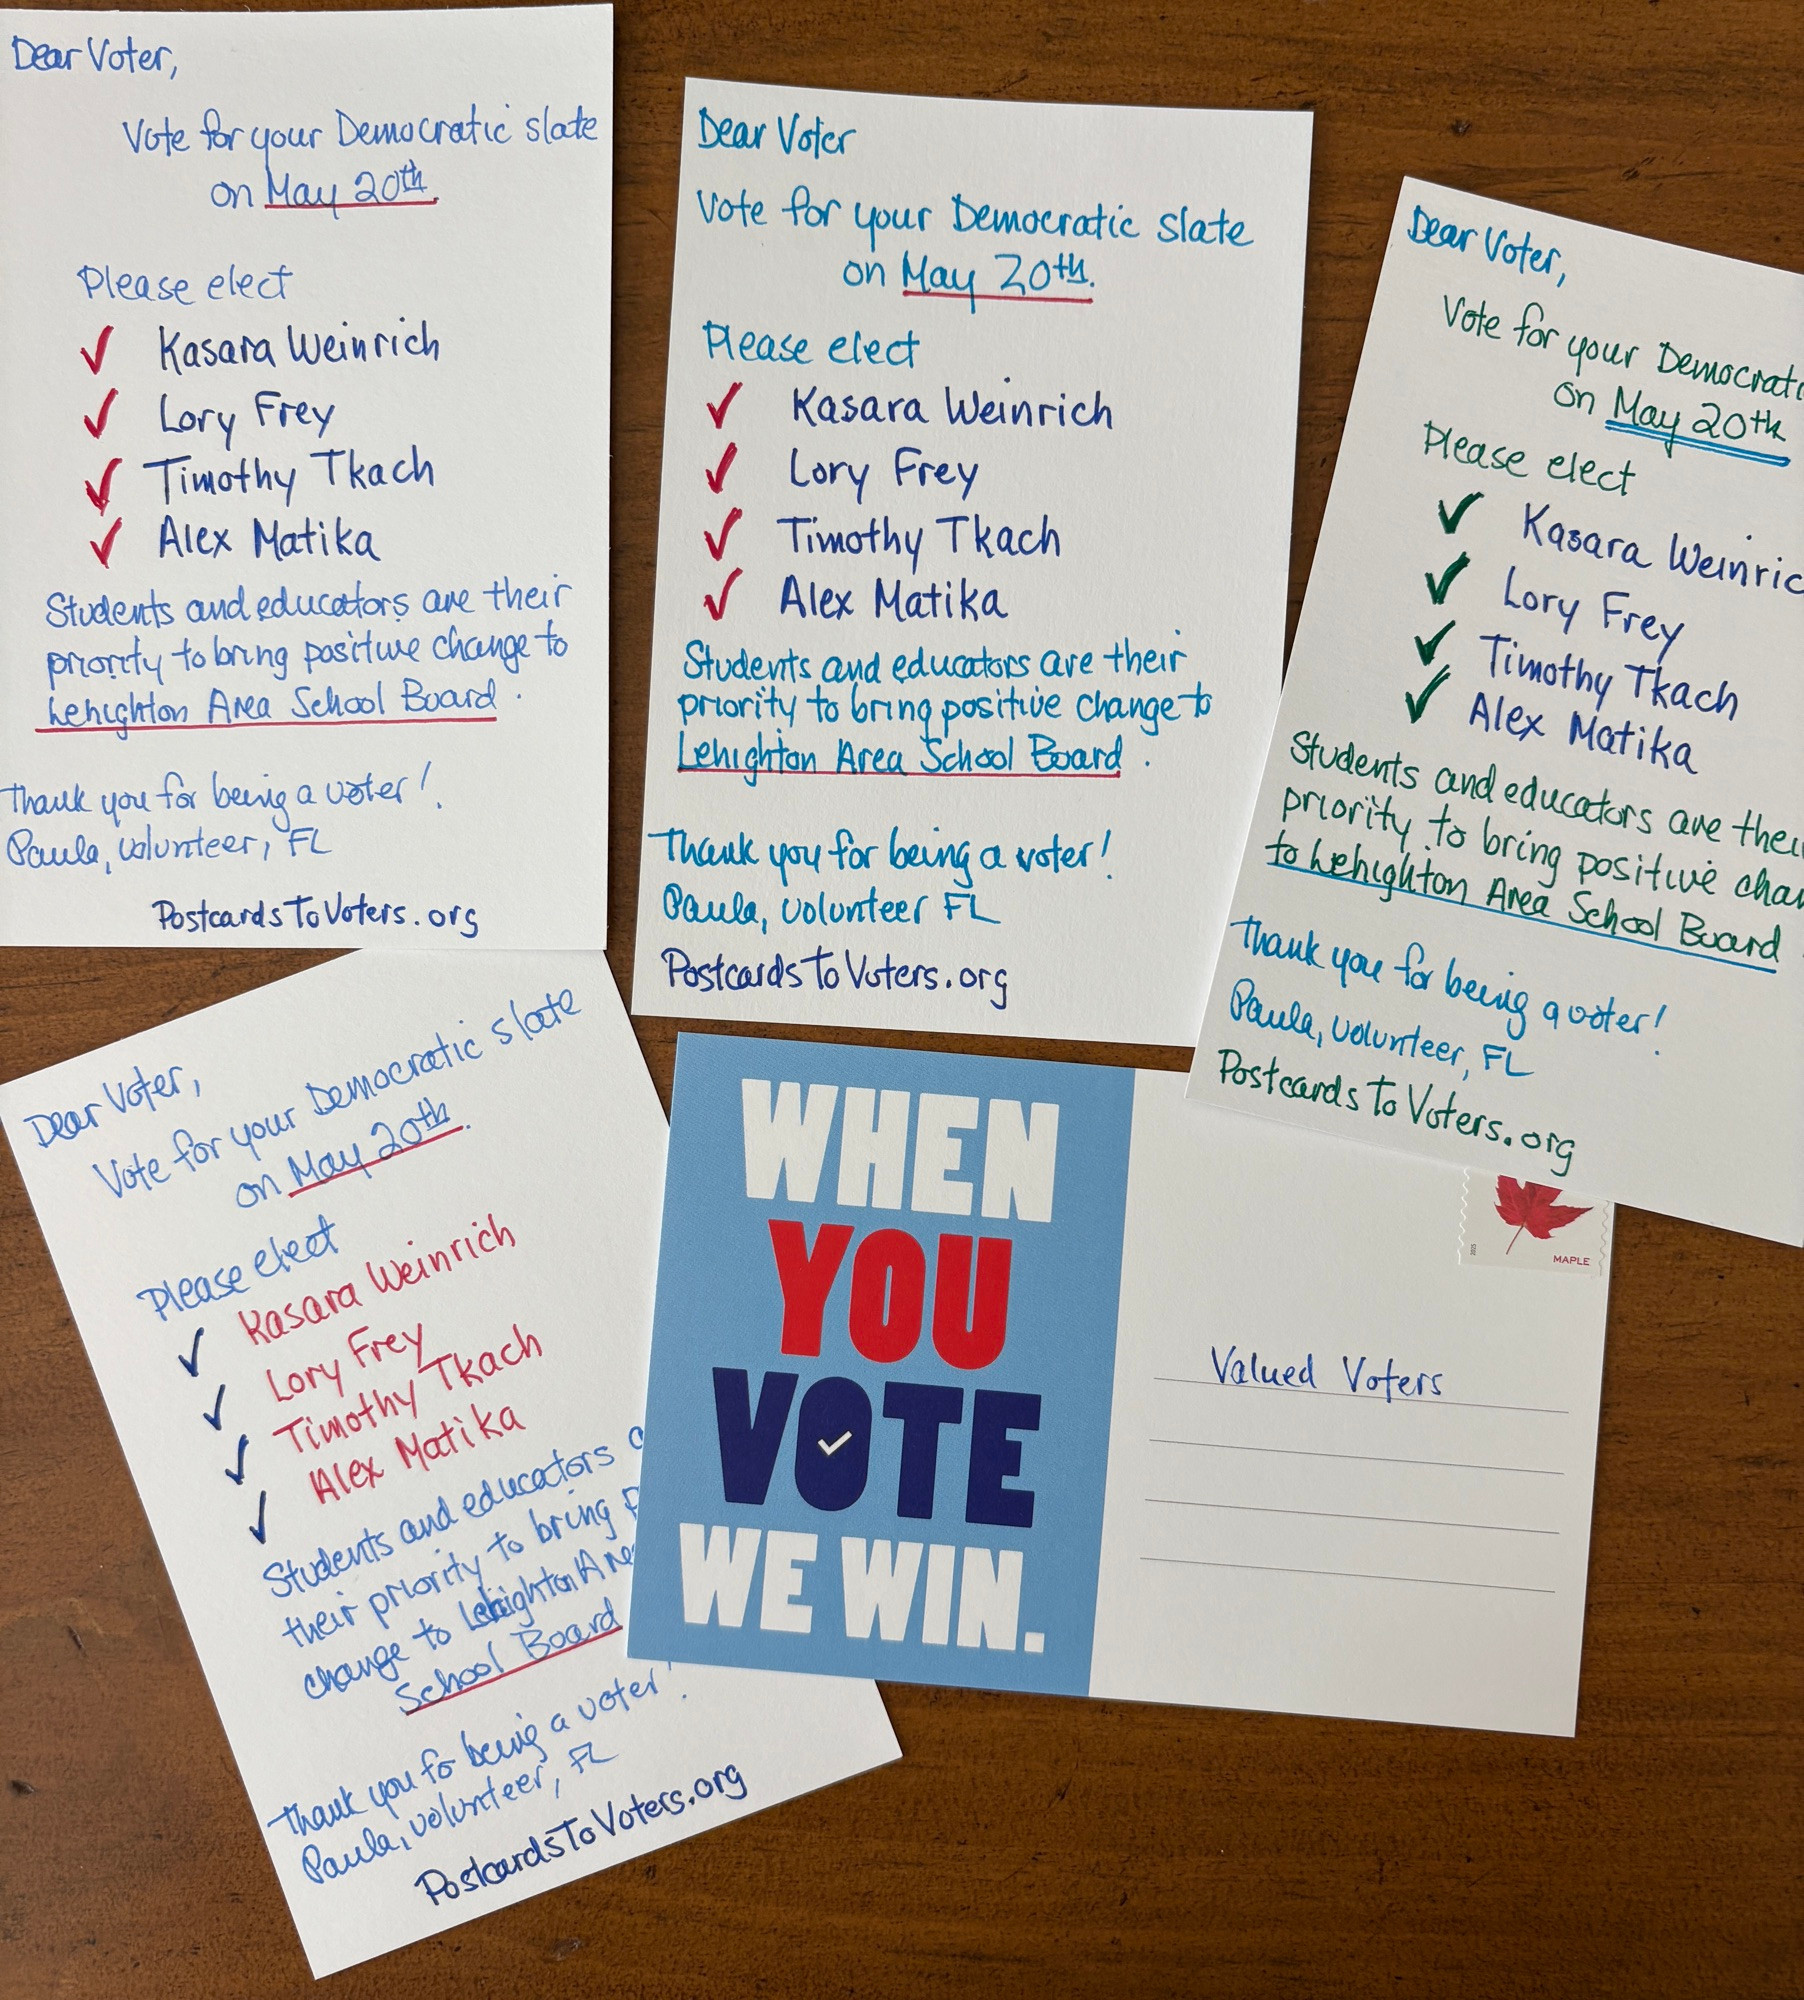 Dear Voter,
Vote for your Democratic slate
on May 20th.
Please elect
✓ Kasara Weinrich
✓ Lory Frey
✓ Timothy Tkach
✓ Alex Matika
Students and educators are their
priority to bring positive change to
Lehighton Area School Board.
Thank you for being a voter!
Paula, volunteer, FL
PostcardsToVoters.org
Dear Voter
Vote for your Democratic slate
on May 20th.
Please elect
✓ Kasara Weinrich
✓ Lory Frey
✓ Timothy Tkach
✓ Alex Matika
Students and educators are their
priority to bring positive change to
Lehighton Area School Board.
Thank you for being a voter!
Paula, volunteer FL
PostcardsToVoters.org
Dear Voter,
Vote for your Democrati
on May 20th
Please elect
✓ Kasara Weinric
✓ Lory Frey
✓ Timothy Tkach
✓ Alex Matika
Students and educators are thei
priority to bring positive chan
to Lehighton Area School Board
Thank you for being a voter!
Paula, volunteer, FL
PostcardsToVoters.org
Dear Voter,
Vote for your Democratic slate
on May 20th.
Please elect
✓ Kasara Weinrich
✓ Lory Frey
✓ Timothy Tkach
✓ Alex Matika
Students and educators a
their priority to bring p
change to Lehighton Are
School Board
Thank you for being a voter!
Paula, volunteer, FL
PostcardsToVoters.org
WHEN
YOU
VOTE
WE WIN.
2025
MAPLE
Valued Voters